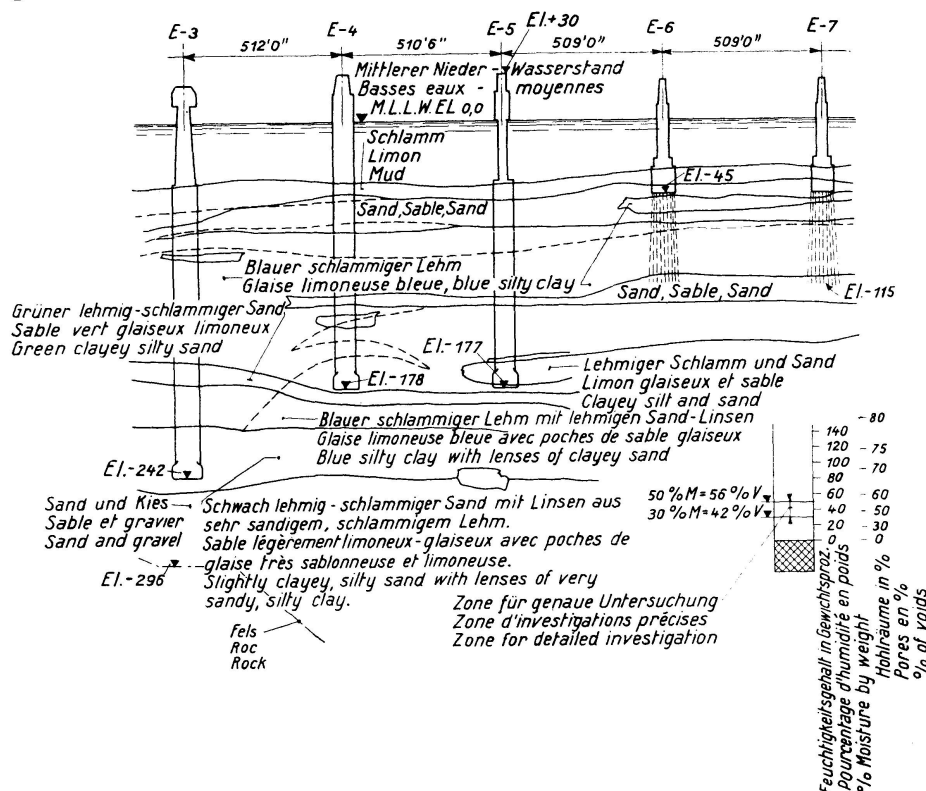 E-3 E-4 E-5 El.+30 E-6 E-7
512'0" 510'6" 509'0" 509'0"
Mittlerer Nieder-Wasserstand
Basses eaux - moyennes
M.L.L.W. EL 0,0
Schlamm
Limon
Mud
El.-45
Sand, Sable, Sand
Blauer schlammiger Lehm
Glaise limoneuse bleue, blue silty clay
Sand, Sable, Sand
El.-115
Grüner lehmig-schlammiger Sand
Sable vert glaiseux limoneux
Green clayey silty sand
El.-177
El.-178
Lehmiger Schlamm und Sand
Limon glaiseux et sable
Clayey silt and sand
Blauer schlammiger Lehm mit lehmigen Sand-Linsen
Glaise limoneuse bleue avec poches de sable glaiseux
Blue silty clay with lenses of clayey sand
El.-242
Sand und Kies
Sable et gravier
Sand and gravel
El.-296
Schwach lehmig-schlammiger Sand mit Linsen aus
sehr sandigem, schlammigem Lehm.
Sable légèrement limoneux-glaiseux avec poches de
glaise très sablonneuse et limoneuse.
Slightly clayey, silty sand with lenses of very
sandy, silty clay.
Fels
Roc
Rock
Zone für genaue Untersuchung
Zone d'investigations précises
Zone for detailed investigation
50 % M = 56 % V
30 % M = 42 % V
140
120
100
80
60
40
20
0
80
75
70
60
50
30
0
Feuchtigkeitsgehalt in Gewichtsproz.
Pourcentage d'humidité en poids
% Moisture by weight
Hohlräume in %
Pores en %
% of voids